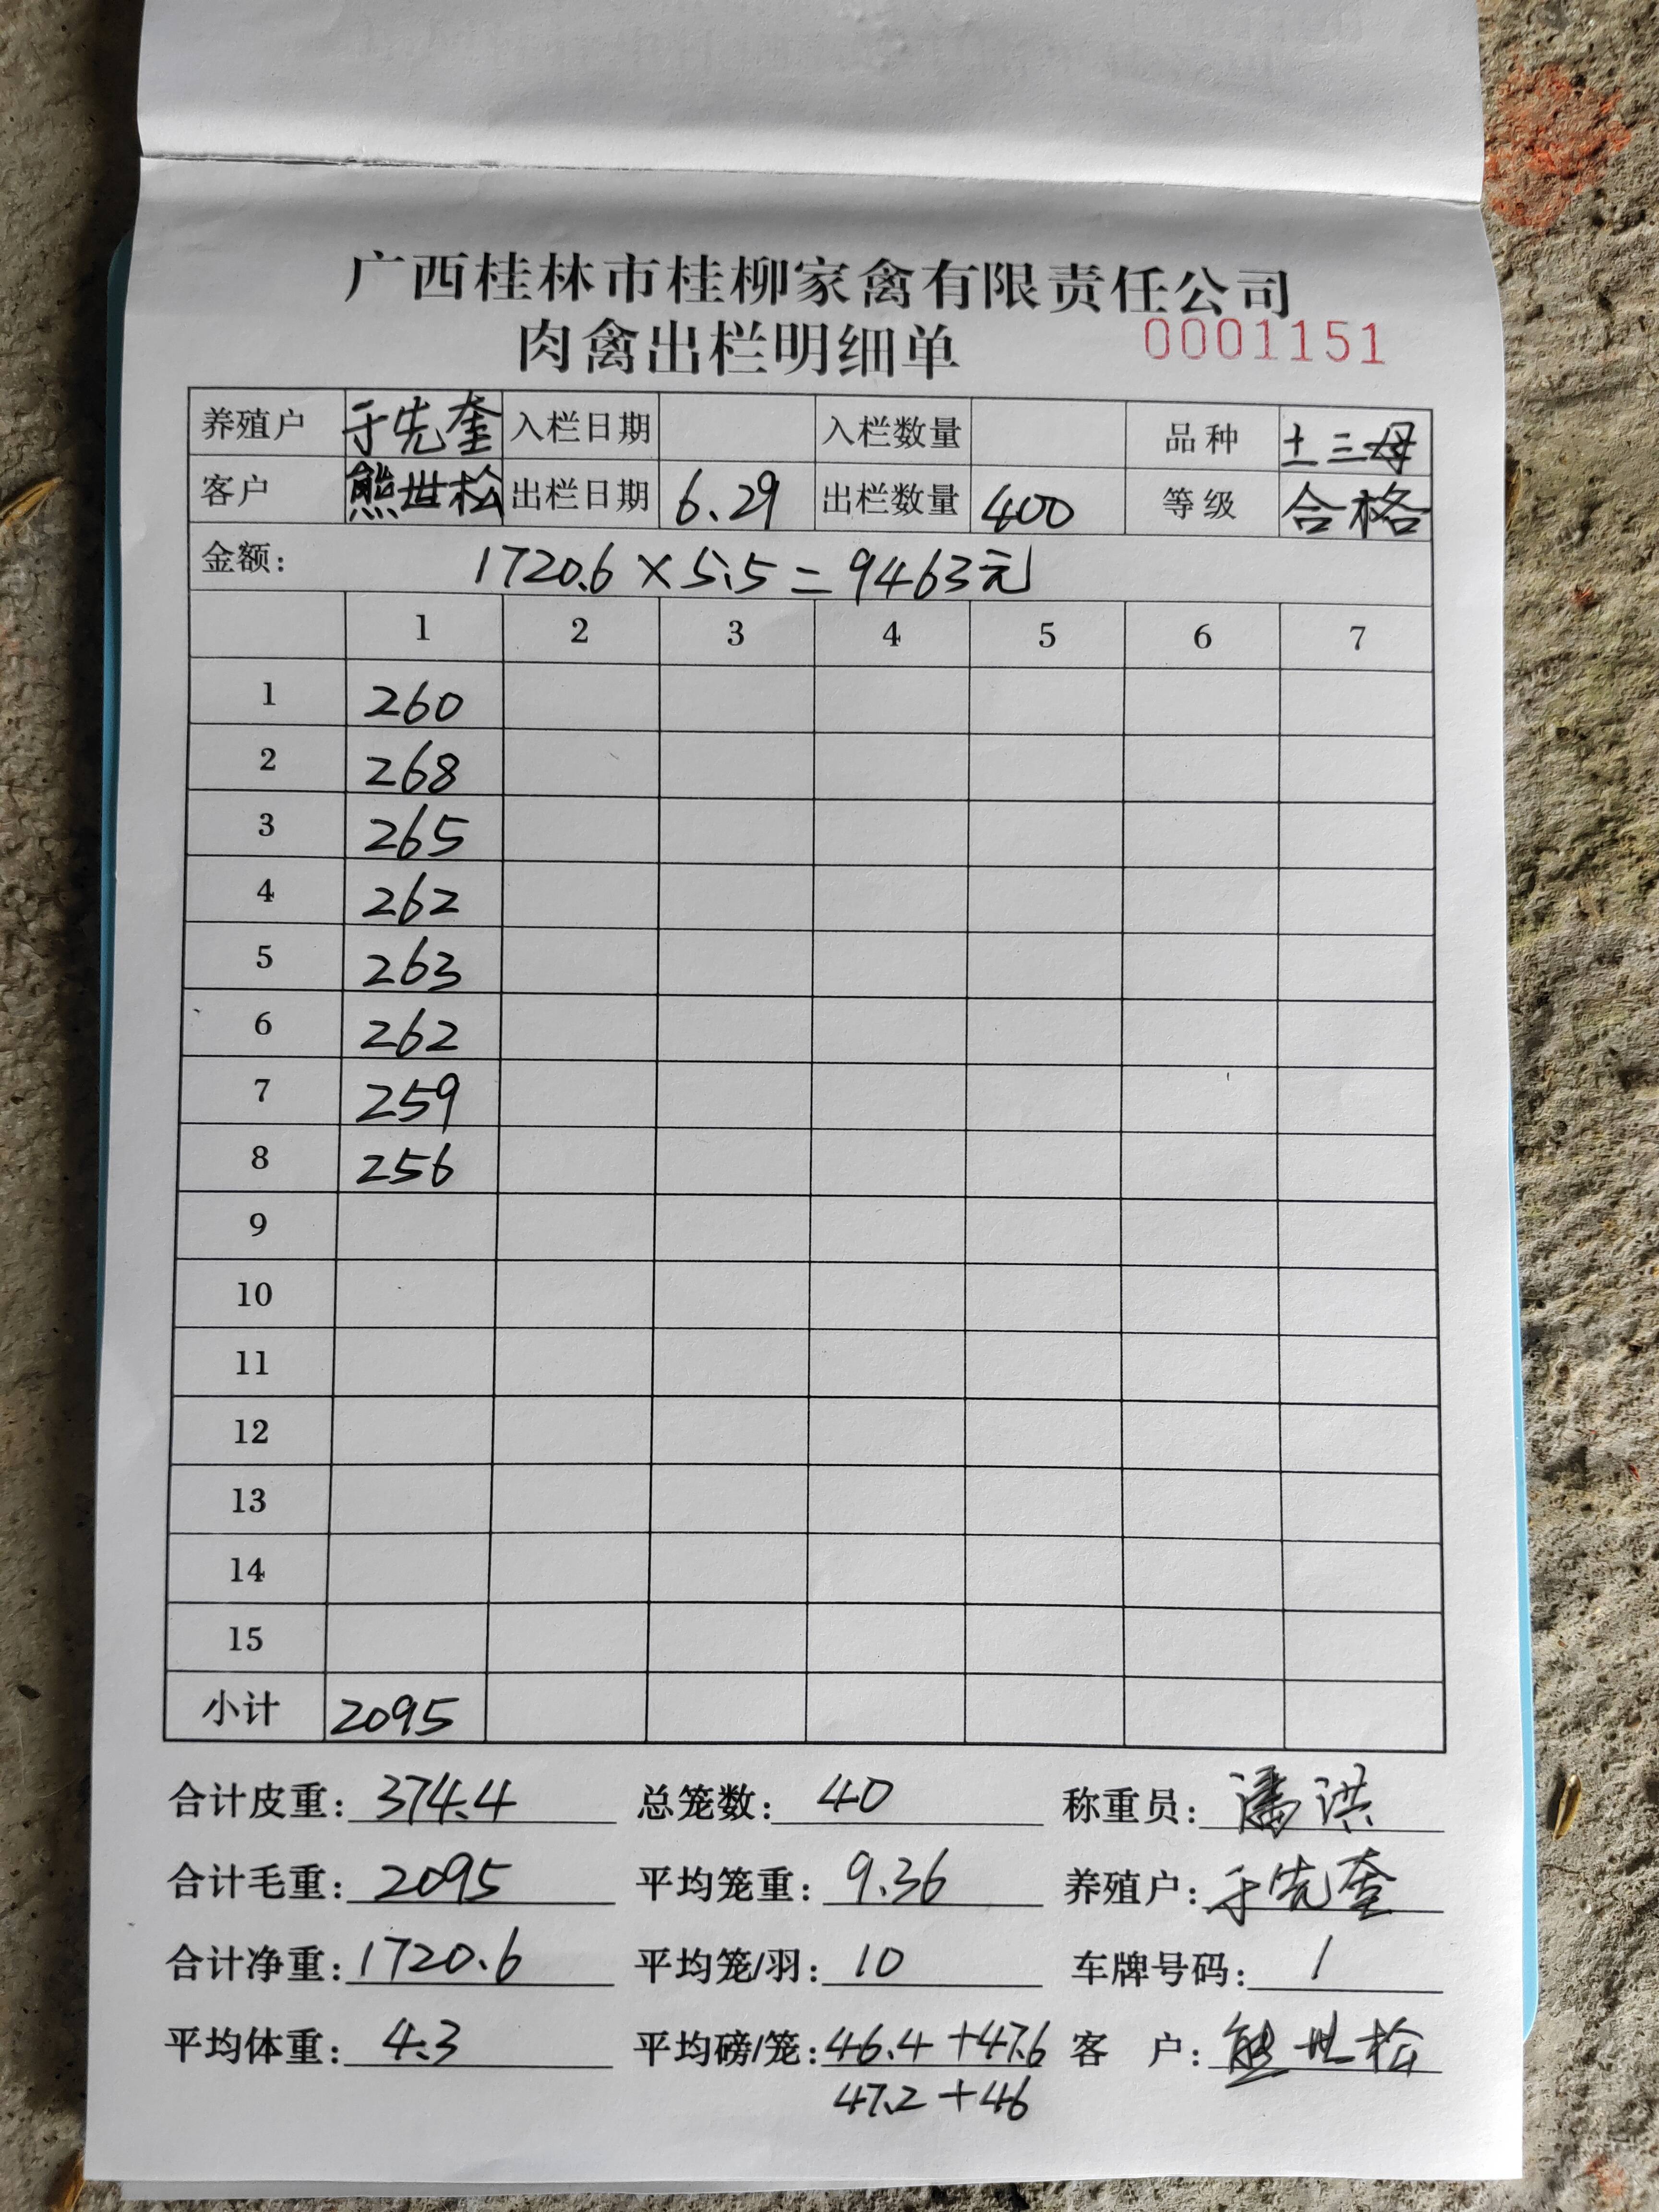 广西桂林市桂柳家禽有限责任公司
肉禽出栏明细单 0001151
养殖户 于先奎 入栏日期 入栏数量 品种 土三母
客户 熊世松 出栏日期 6.29 出栏数量 400 等级 合格
金额: 1720.6×5.5=9463元
1 2 3 4 5 6 7
1 260
2 268
3 265
4 262
5 263
6 262
7 259
8 256
9
10
11
12
13
14
15
小计 2095
合计皮重: 374.4 总笼数: 40 称重员: 潘洪
合计毛重: 2095 平均笼重: 9.36 养殖户: 于先奎
合计净重: 1720.6 平均笼/羽: 10 车牌号码: 1
平均体重: 4.3 平均磅/笼: 46.4+47.6 客 户: 熊世松
47.2+46